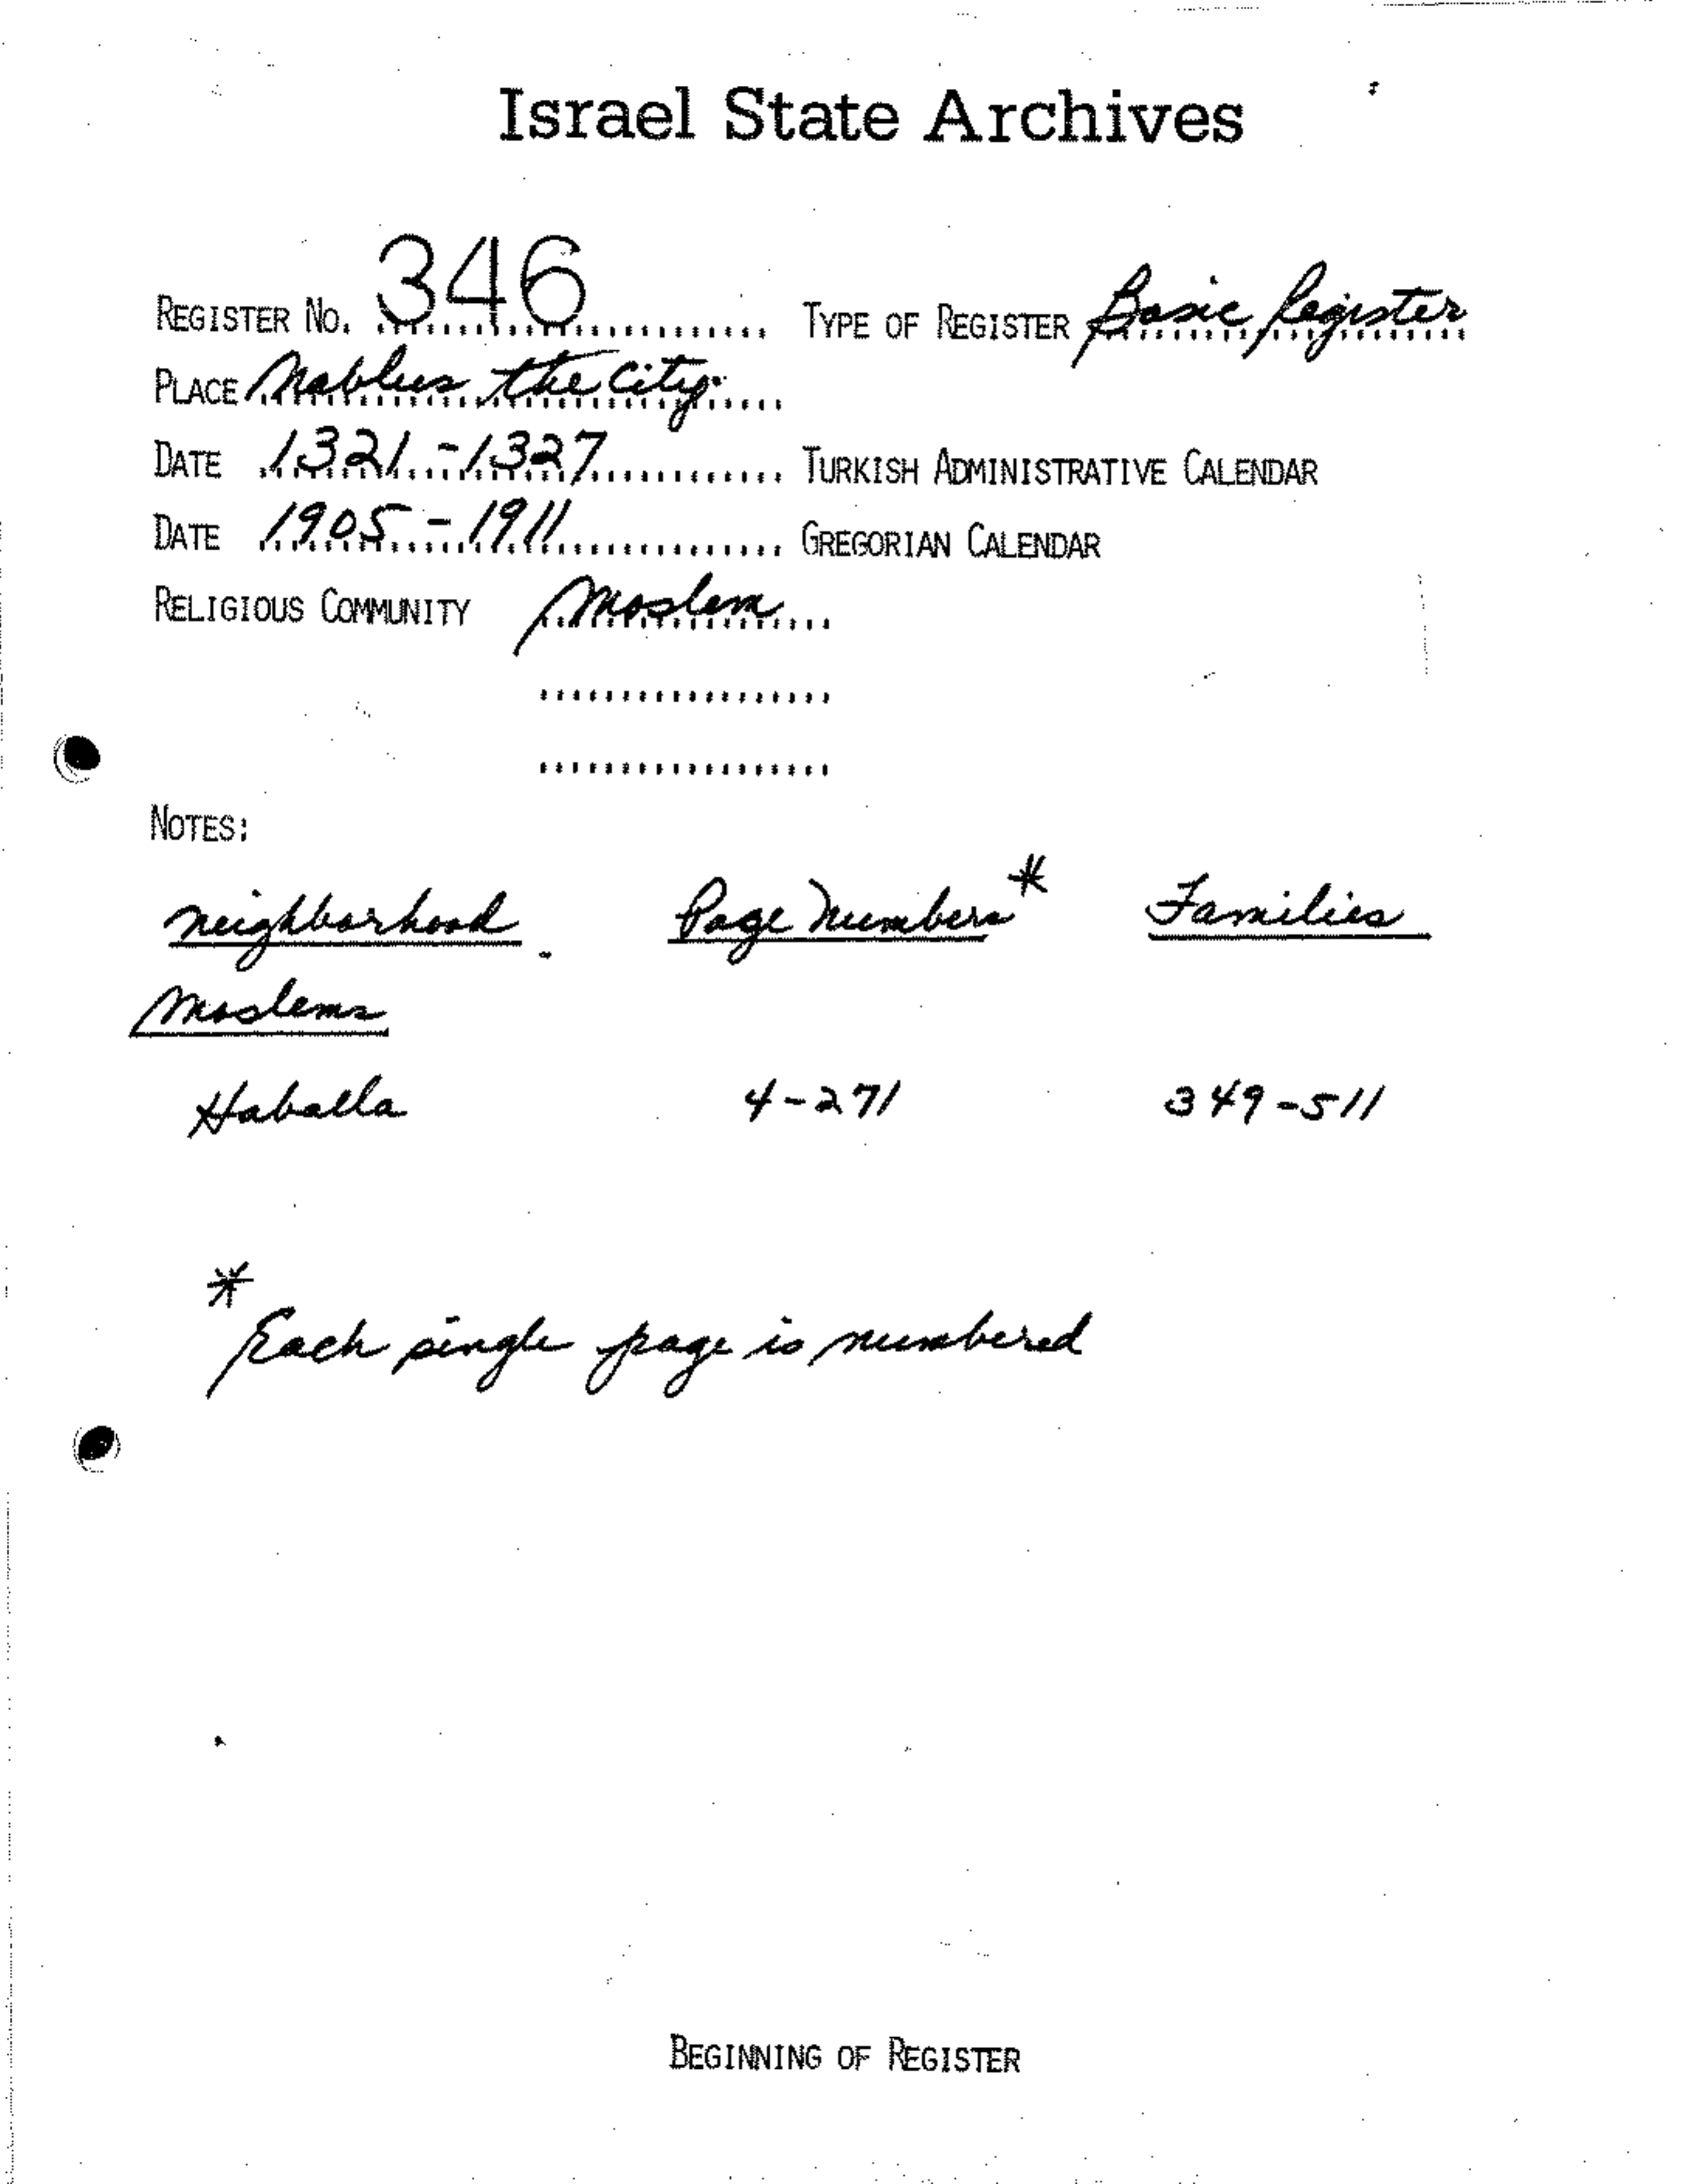 Israel State Archives
REGISTER NO. 346 TYPE OF REGISTER Basic Register
PLACE Nablus the City
DATE 1321-1327 TURKISH ADMINISTRATIVE CALENDAR
DATE 1905-1911 GREGORIAN CALENDAR
RELIGIOUS COMMUNITY Moslem
NOTES:
Neighborhood Page Numbers* Families
Moslems
Haballa 4-271 349-511
* Each single page is numbered
BEGINNING OF REGISTER